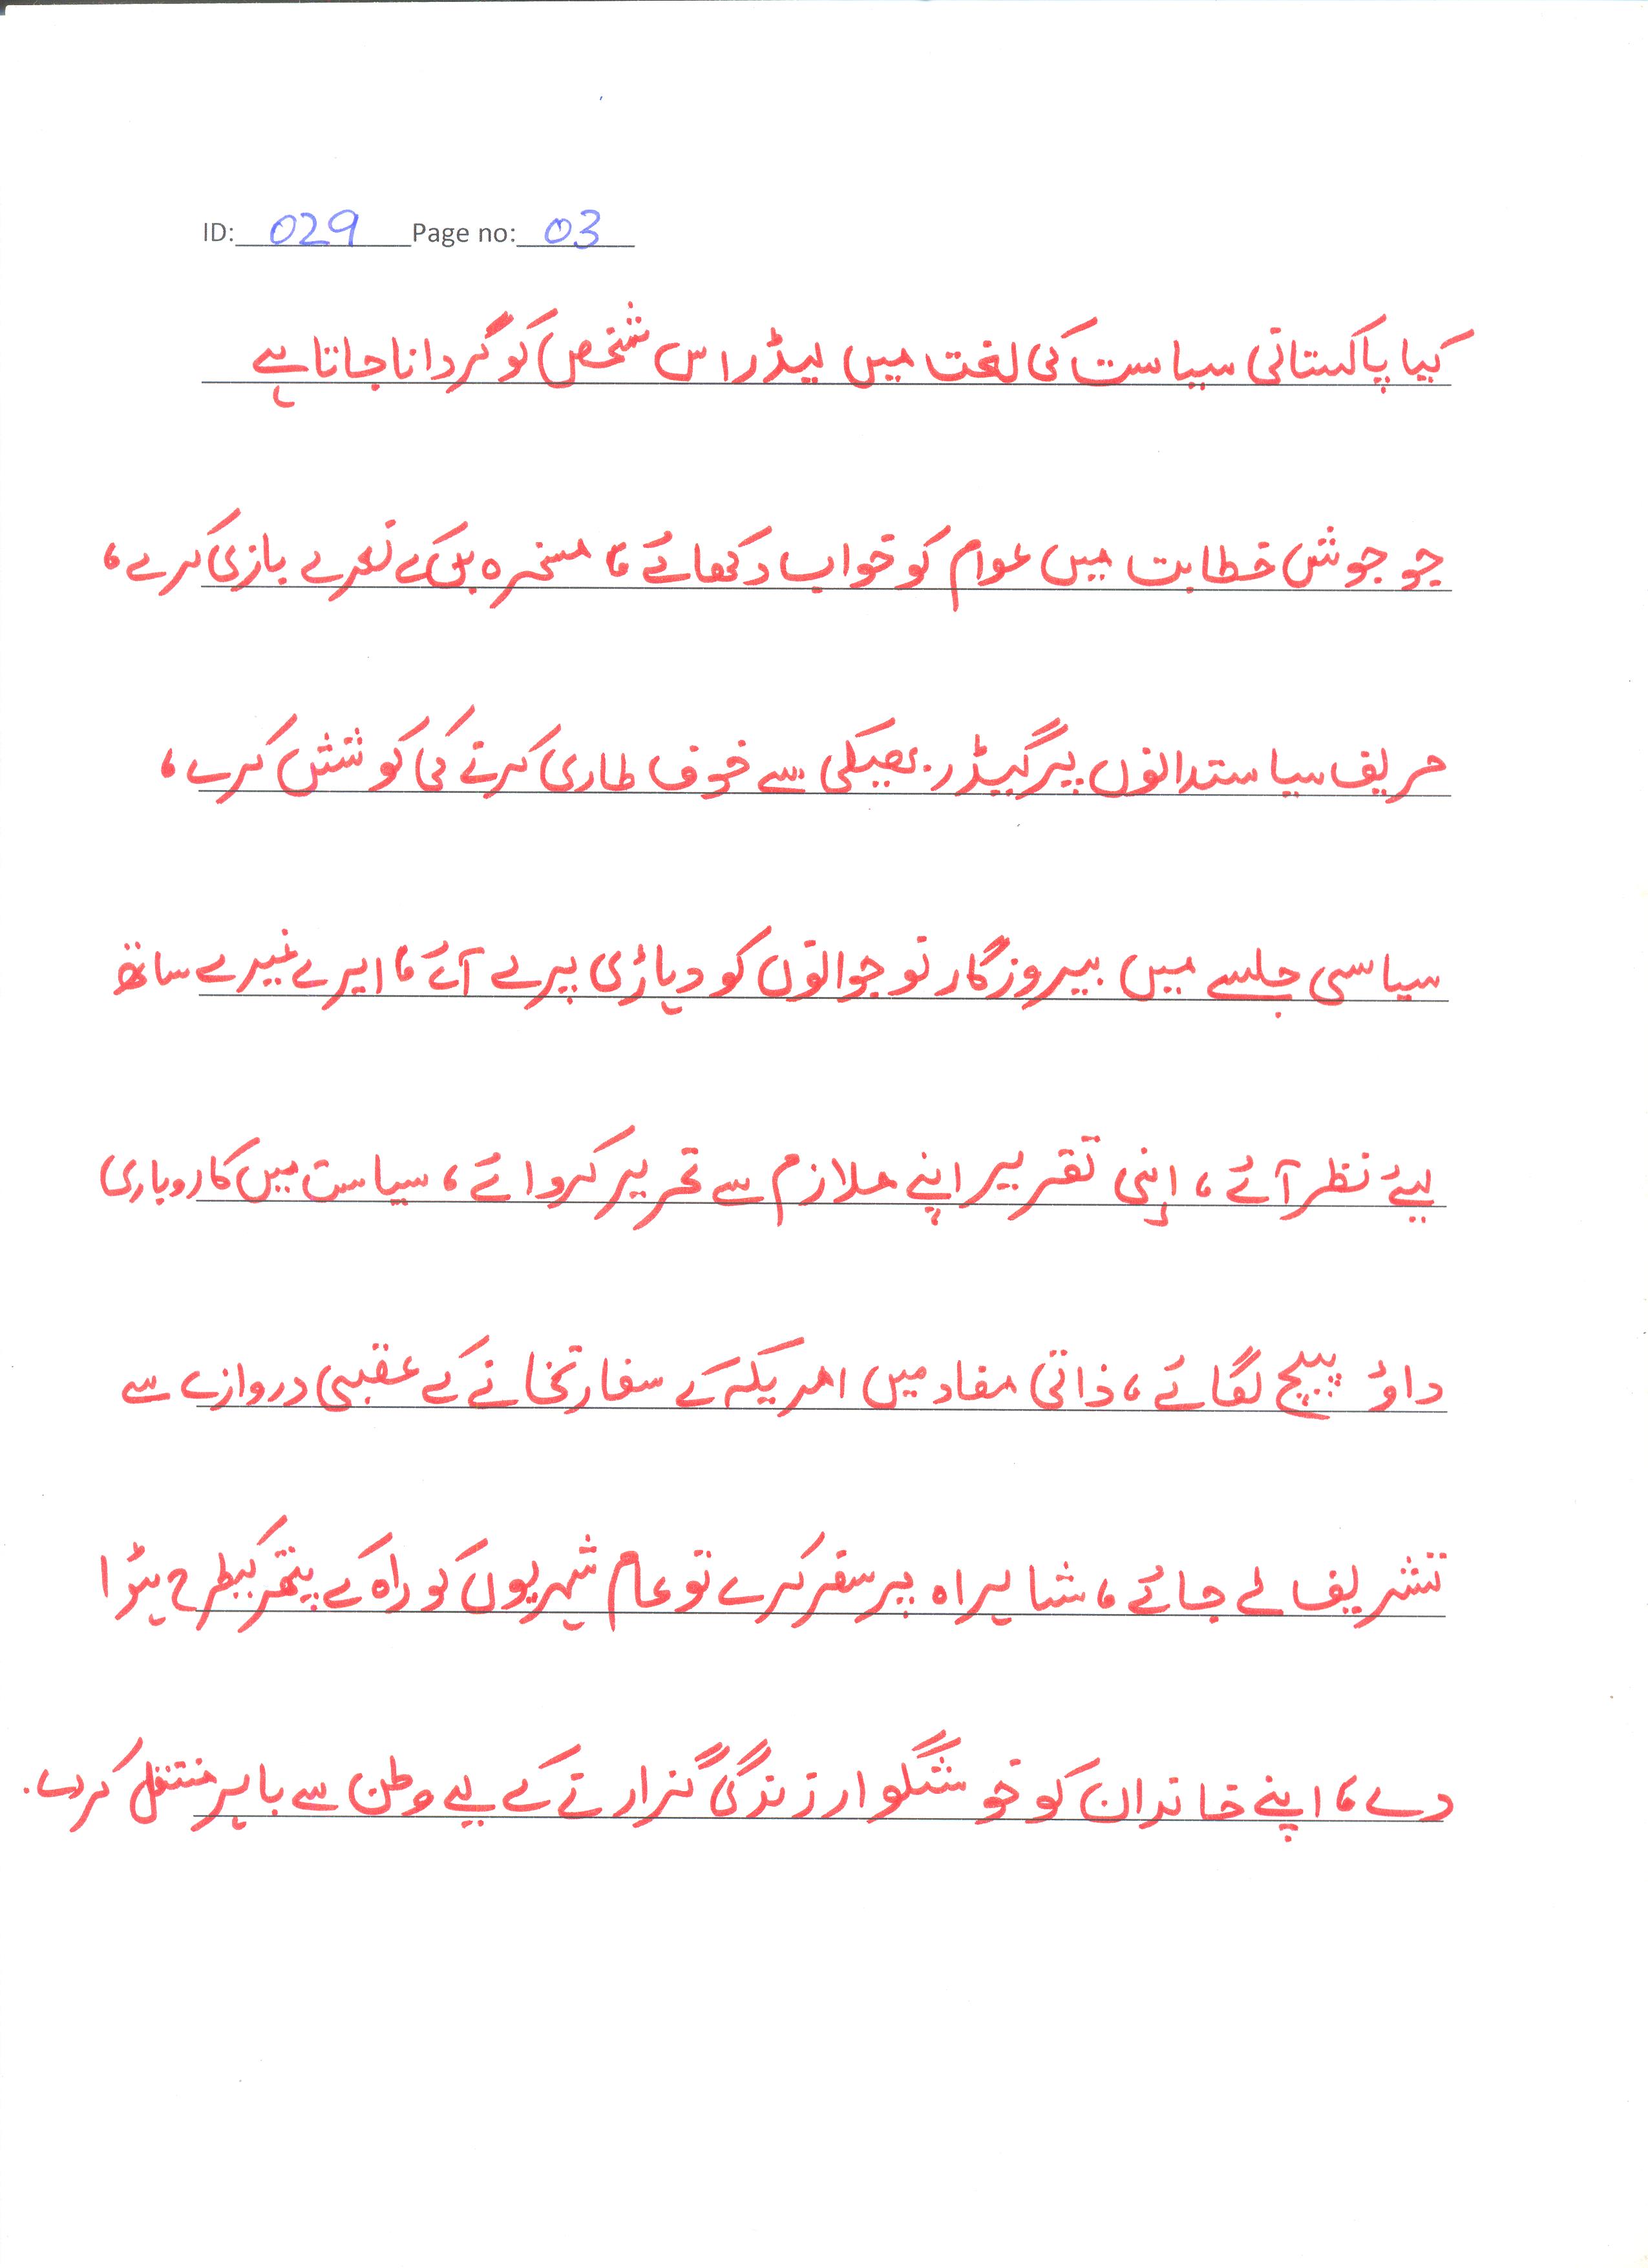 ID: 029 Page no: 03
کیا پاکستانی سیاست کی لغت میں لیڈر اس شخص کو گردانا جاتا ہے
جو جوش خطابت میں عوام کو خواب دکھائے، مسخرہ بن کے نعرے بازی کرے،
حریف سیاستدانوں پر گیڈر بھبکی سے خوف طاری کرنے کی کوشش کرے،
سیاسی جلسے میں بیروزگار نوجوانوں کو دہاڑی پر لے آئے، ایرے غیرے ساتھ
لیئے نظر آئے، اپنی تقریر اپنے ملازم سے تحریر کروائے، سیاست میں کاروباری
داؤ پیچ لگائے، ذاتی مفاد میں امریکہ کے سفارتخانے کے عقبی دروازے سے
تشریف لے جائے، شاہراہ پر سفر کرے تو عام شہریوں کو راہ کے پتھر کیطرح ہٹوا
دے، اپنے خاندان کو خوشگوار زندگی گزارنے کے لیے وطن سے باہر منتقل کر دے۔